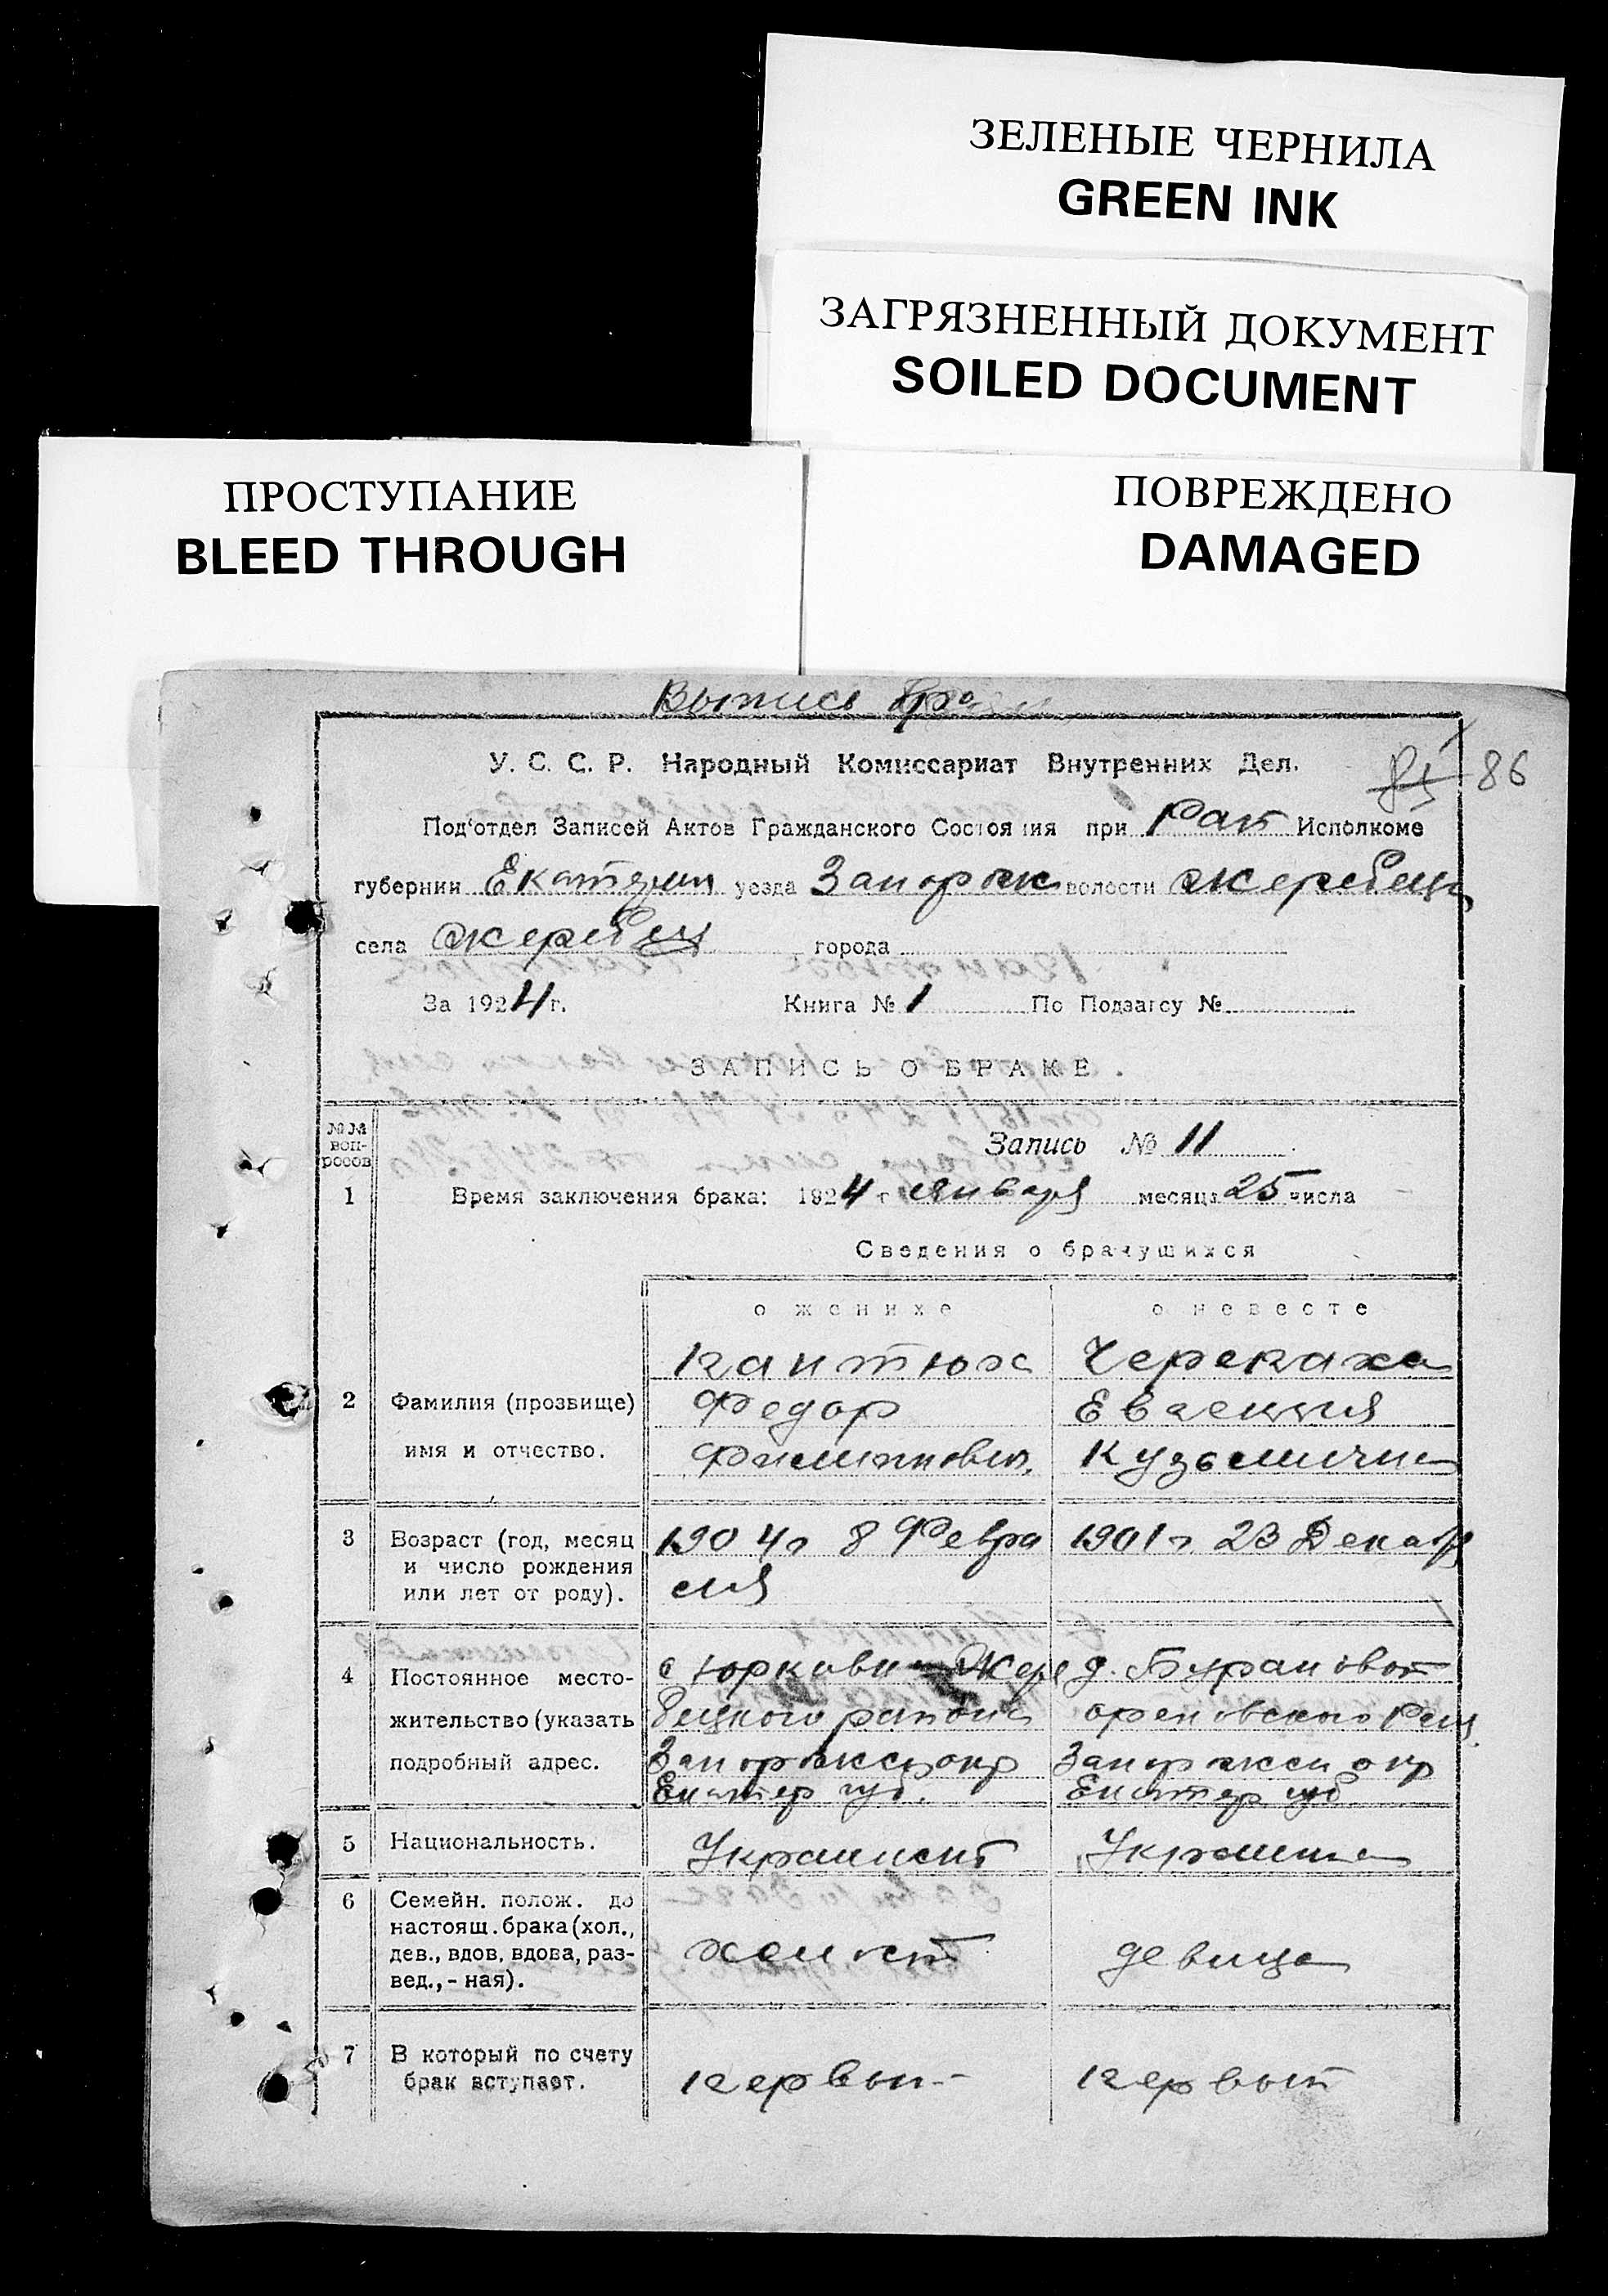 ЗЕЛЕНЫЕ ЧЕРНИЛА
GREEN INK
ЗАГРЯЗНЕННЫЙ ДОКУМЕНТ
SOILED DOCUMENT
ПРОСТУПАНИЕ
BLEED THROUGH
ПОВРЕЖДЕНО
DAMAGED
Выпись
У. С. С. Р. Народный Комиссариат Внутренних Дел.
85 86
Под'отдел Записей Актов Гражданского Состояния при Рай Исполкоме
губернии Екатерин уезда Запорож волости Жеребец
села Жеребец города
За 1924 г. Книга № 1 По Подзагсу №
ЗАПИСЬ О БРАКЕ.
№№ вопросов
Запись № 11
1 Время заключения брака: 1924 г января месяца 25 числа
Сведения о брачущихся
о женихе о невесте
Черепаха
2 Фамилия (прозвище) Федор
имя и отчество. Филиппович. Кузьминична
3 Возраст (год, месяц 1904 г 8 Февра 1901 г. 23 Декабр
и число рождения ля
или лет от роду).
4 Постоянное место- с Юрковка Жере д. Бурановой
жительство (указать бецкого района
подробный адрес. Запорожск окр Запорожск окр
Екатер губ. Екатер губ
5 Национальность. Украинец Украинка
6 Семейн. полож. до
настоящ. брака (хол., холост девица
дев., вдов, вдова, раз-
вед., - ная).
7 В который по счету первый первый
брак вступает.